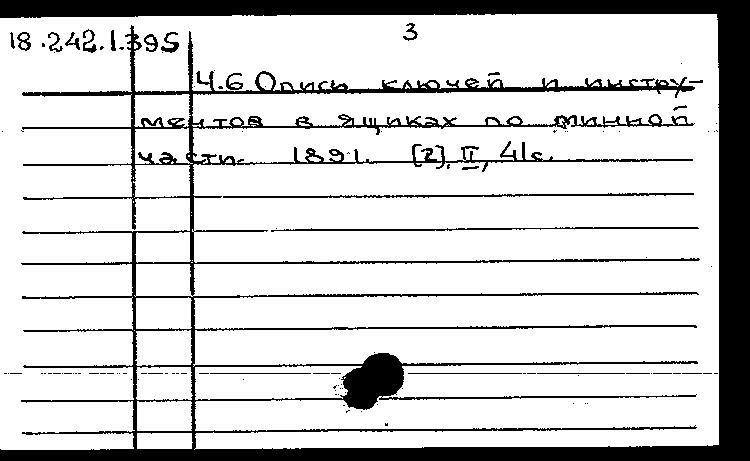 18.242.1.395
3
Ч.6 Описи ключей и инстру-
ментов в ящиках по минной
части. 1891. [2], II, 41с.